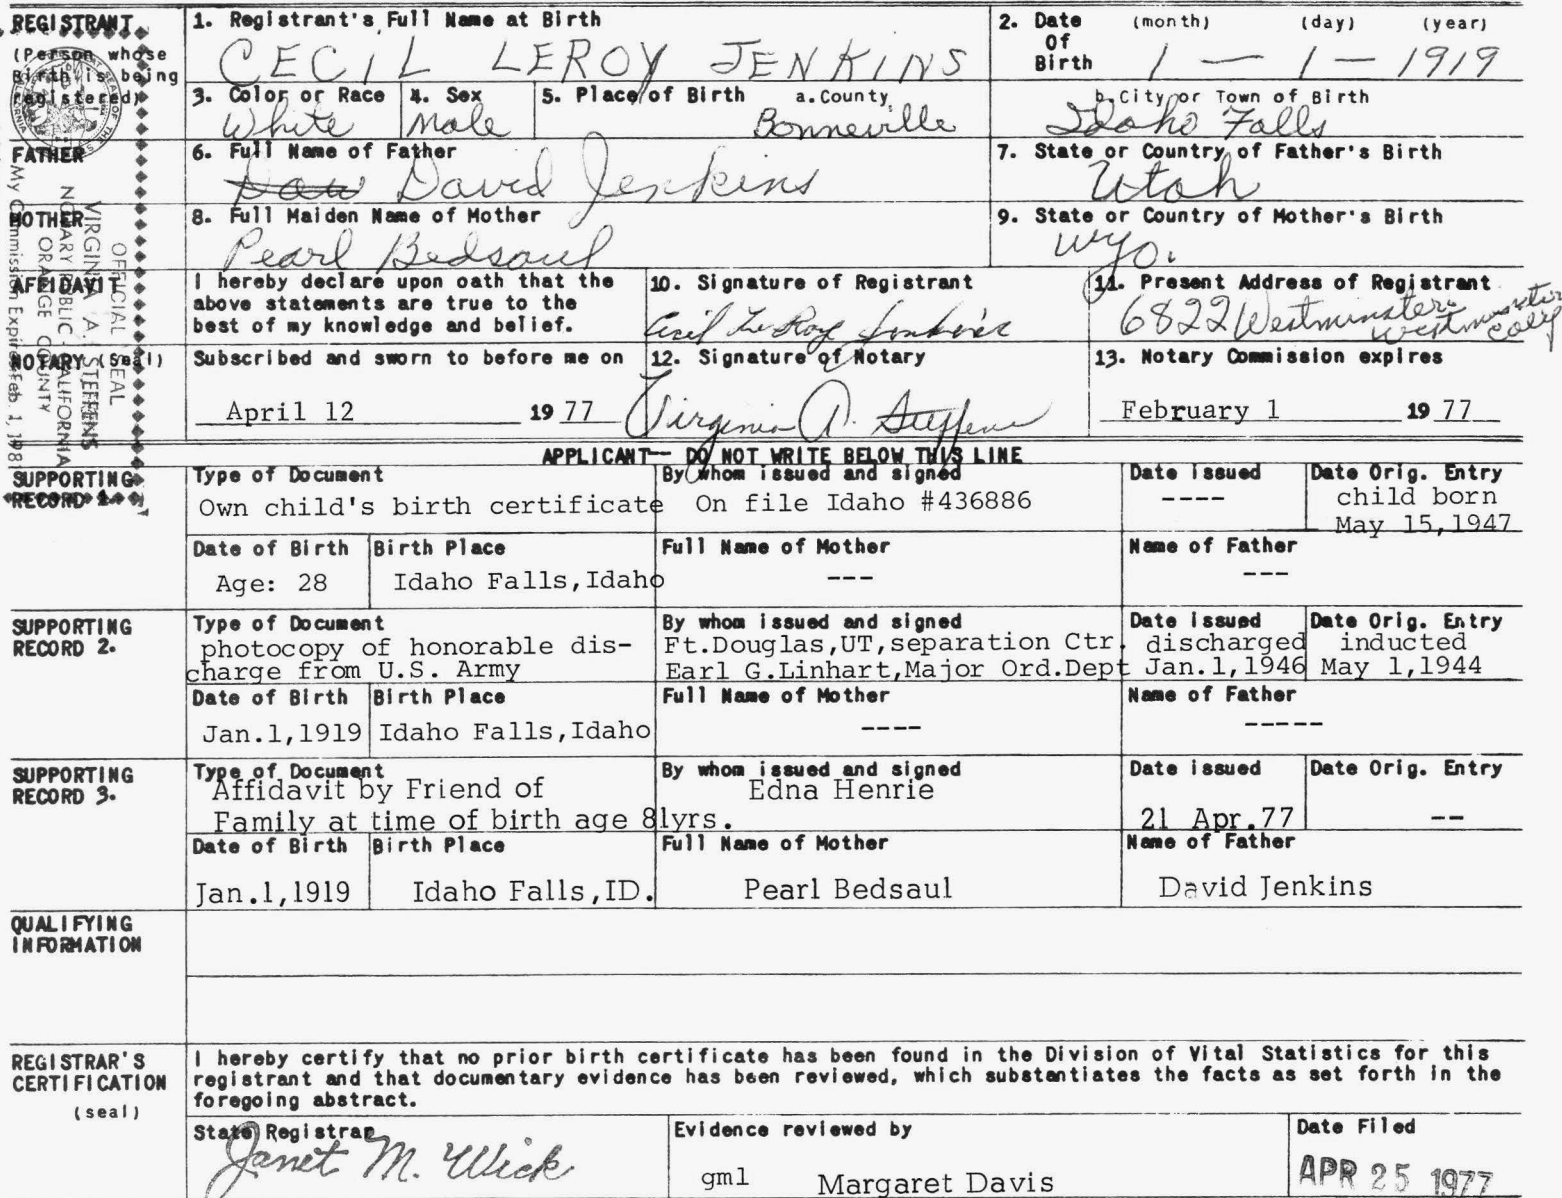 REGISTRANT
(Person whose
Birth is being
registered)
1. Registrant's Full Name at Birth
CECIL LEROY JENKINS
2. Date Of Birth (month) (day) (year)
1 — 1 — 1919
3. Color or Race
White
4. Sex
Male
5. Place of Birth a. County
Bonneville
b. City or Town of Birth
Idaho Falls
FATHER
6. Full Name of Father
David Jenkins
7. State or Country of Father's Birth
Utah
MOTHER
8. Full Maiden Name of Mother
Pearl Bedsaul
9. State or Country of Mother's Birth
Wyo.
AFFIDAVIT
I hereby declare upon oath that the
above statements are true to the
best of my knowledge and belief.
10. Signature of Registrant
Cecil LeRoy Jenkins
11. Present Address of Registrant
6822 Westminster
Westminster
NOTARY (Seal)
Subscribed and sworn to before me on
April 12 1977
12. Signature of Notary
Virginia A. Steffens
13. Notary Commission expires
February 1 1977
OFFICIAL SEAL
VIRGINIA A. STEFFENS
NOTARY PUBLIC - CALIFORNIA
ORANGE COUNTY
My Commission Expires Feb. 1, 198
APPLICANT— DO NOT WRITE BELOW THIS LINE
SUPPORTING
RECORD 1.
Type of Document
Own child's birth certificate
By whom issued and signed
On file Idaho #436886
Date issued
----
Date Orig. Entry
child born
May 15,1947
Date of Birth
Age: 28
Birth Place
Idaho Falls,Idaho
Full Name of Mother
---
Name of Father
---
SUPPORTING
RECORD 2.
Type of Document
photocopy of honorable dis-
charge from U.S. Army
By whom issued and signed
Ft.Douglas,UT,separation Ctr.
Earl G.Linhart,Major Ord.Dept
Date issued
discharged
Jan.1,1946
Date Orig. Entry
inducted
May 1,1944
Date of Birth
Jan.1,1919
Birth Place
Idaho Falls,Idaho
Full Name of Mother
----
Name of Father
-----
SUPPORTING
RECORD 3.
Type of Document
Affidavit by Friend of
Family at time of birth age 81yrs.
By whom issued and signed
Edna Henrie
Date issued
21 Apr.77
Date Orig. Entry
--
Date of Birth
Jan.1,1919
Birth Place
Idaho Falls,ID.
Full Name of Mother
Pearl Bedsaul
Name of Father
David Jenkins
QUALIFYING
INFORMATION
REGISTRAR'S
CERTIFICATION
(seal)
I hereby certify that no prior birth certificate has been found in the Division of Vital Statistics for this
registrant and that documentary evidence has been reviewed, which substantiates the facts as set forth in the
foregoing abstract.
State Registrar
Janet M. Wick
Evidence reviewed by
gml Margaret Davis
Date Filed
APR 25 1977